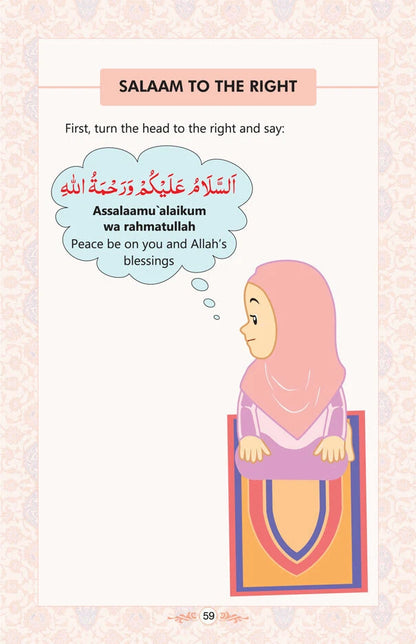 SALAAM TO THE RIGHT
First, turn the head to the right and say:
اَلسَّلَامُ عَلَيْكُمْ وَرَحْمَةُ اللهِ
Assalaamu`alaikum
wa rahmatullah
Peace be on you and Allah's
blessings
59